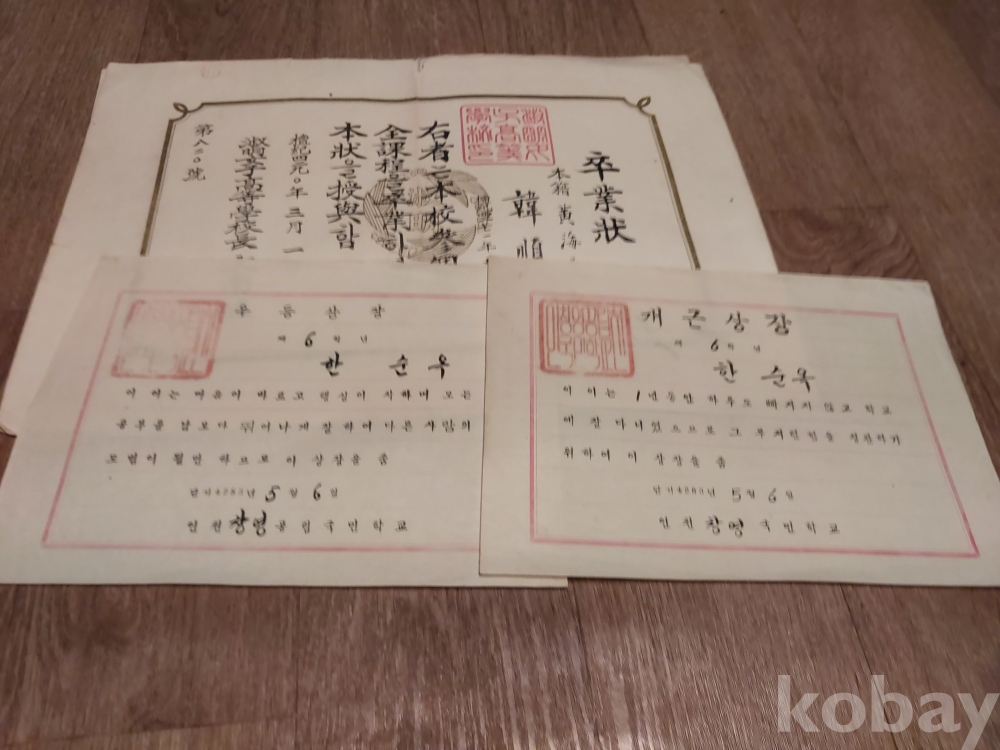 卒業狀
本籍 黃海
韓順
右者는本校參個
全課程을卒業하
本狀을授與함
檀紀四二九〇年 三月 一
淑明女子高等學校長
第八二〇號
우등상장
제 6 학년
한 순 옥
이 아이는 마음이 바르고 행실이 착하며 모든
공부를 남보다 뛰어나게 잘 하여 다른 사람의
모범이 될만 하므로 이 상장을 줌
단기 4283년 5월 6일
인천 창영 공립국민학교
개근상장
제 6 학년
한 순옥
이 아이는 1년동안 하루도 빠지지 않고 학교
에 잘 다니었으므로 그 부지런함을 칭찬하기
위하여 이 상장을 줌
단기 4283년 5월 6일
인천 창영 국민학교
kobay